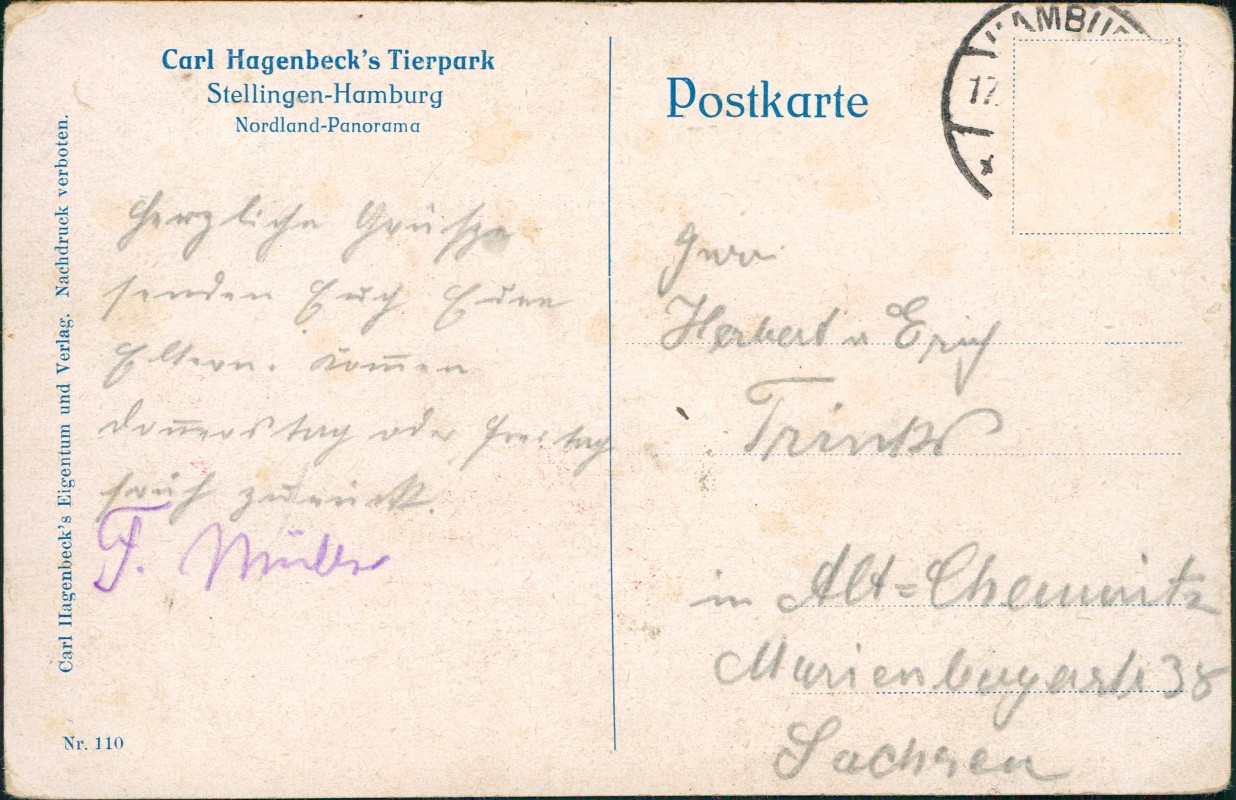 Carl Hagenbeck's Tierpark
Stellingen-Hamburg
Nordland-Panorama
Postkarte
HAMBU
17.
Herzliche Grüße
senden Euch Eure
Eltern. Kom̅en
Don̅erstag oder Freitag
früh zurück.
F. Müller
Herbert u Erich
in Alt=Chemnitz
38
Sachsen
Carl Hagenbeck's Eigentum und Verlag. Nachdruck verboten.
Nr. 110